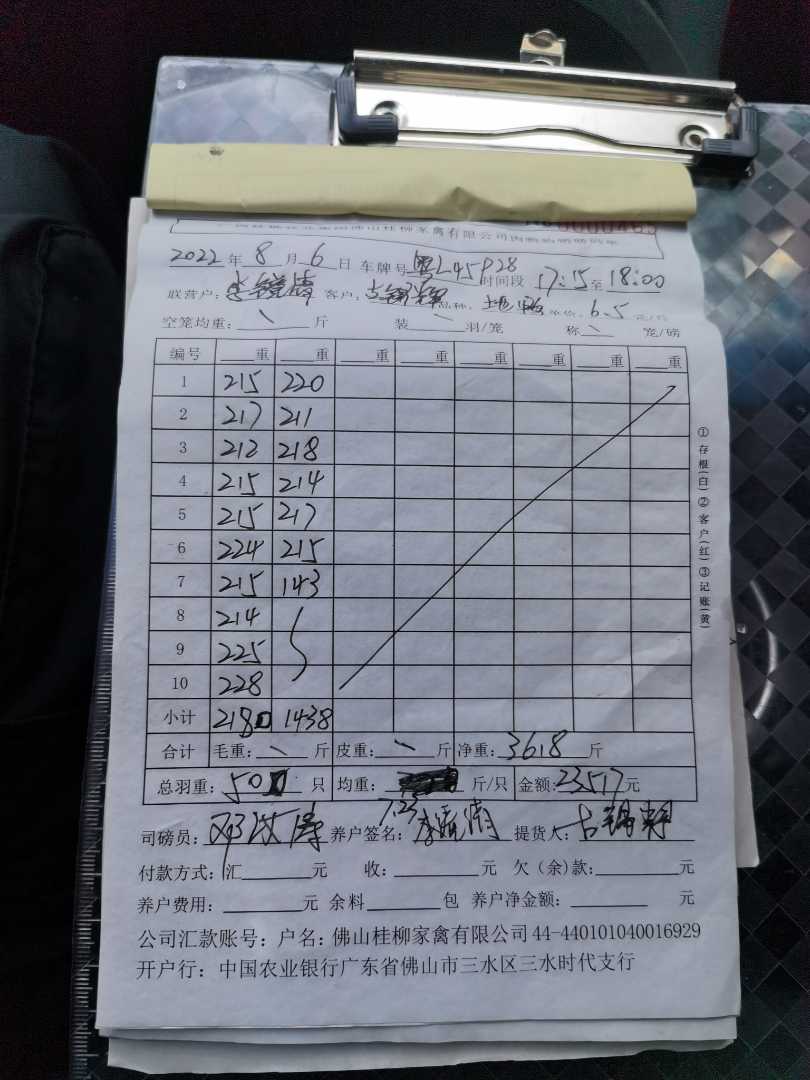 佛山桂柳家禽有限公司
2022年8月6日 车牌号粤L45P28 时间段 17:15至18:00
联营户: 客户: 品种: 单价: 6.5 元/斤
空笼均重: 斤 装 羽/笼 称 笼/磅
编号 重 重 重 重 重 重 重 重
1 215 220
2 217 211
3 212 218
4 215 214
5 215 217
6 224 215
7 215 143
8 214
9 225
10 228
小计 2180 1438
合计 毛重: 斤 皮重: 斤 净重: 3618 斤
总羽重: 500 只 均重: 斤/只 金额: 23517元
7.23
司磅员: 养户签名: 提货人:
付款方式:汇 元 收: 元 欠(余)款: 元
养户费用: 元 余料 包 养户净金额: 元
公司汇款账号:户名:佛山桂柳家禽有限公司44-440101040016929
开户行:中国农业银行广东省佛山市三水区三水时代支行
①存根(白)②客户(红)③记账(黄)